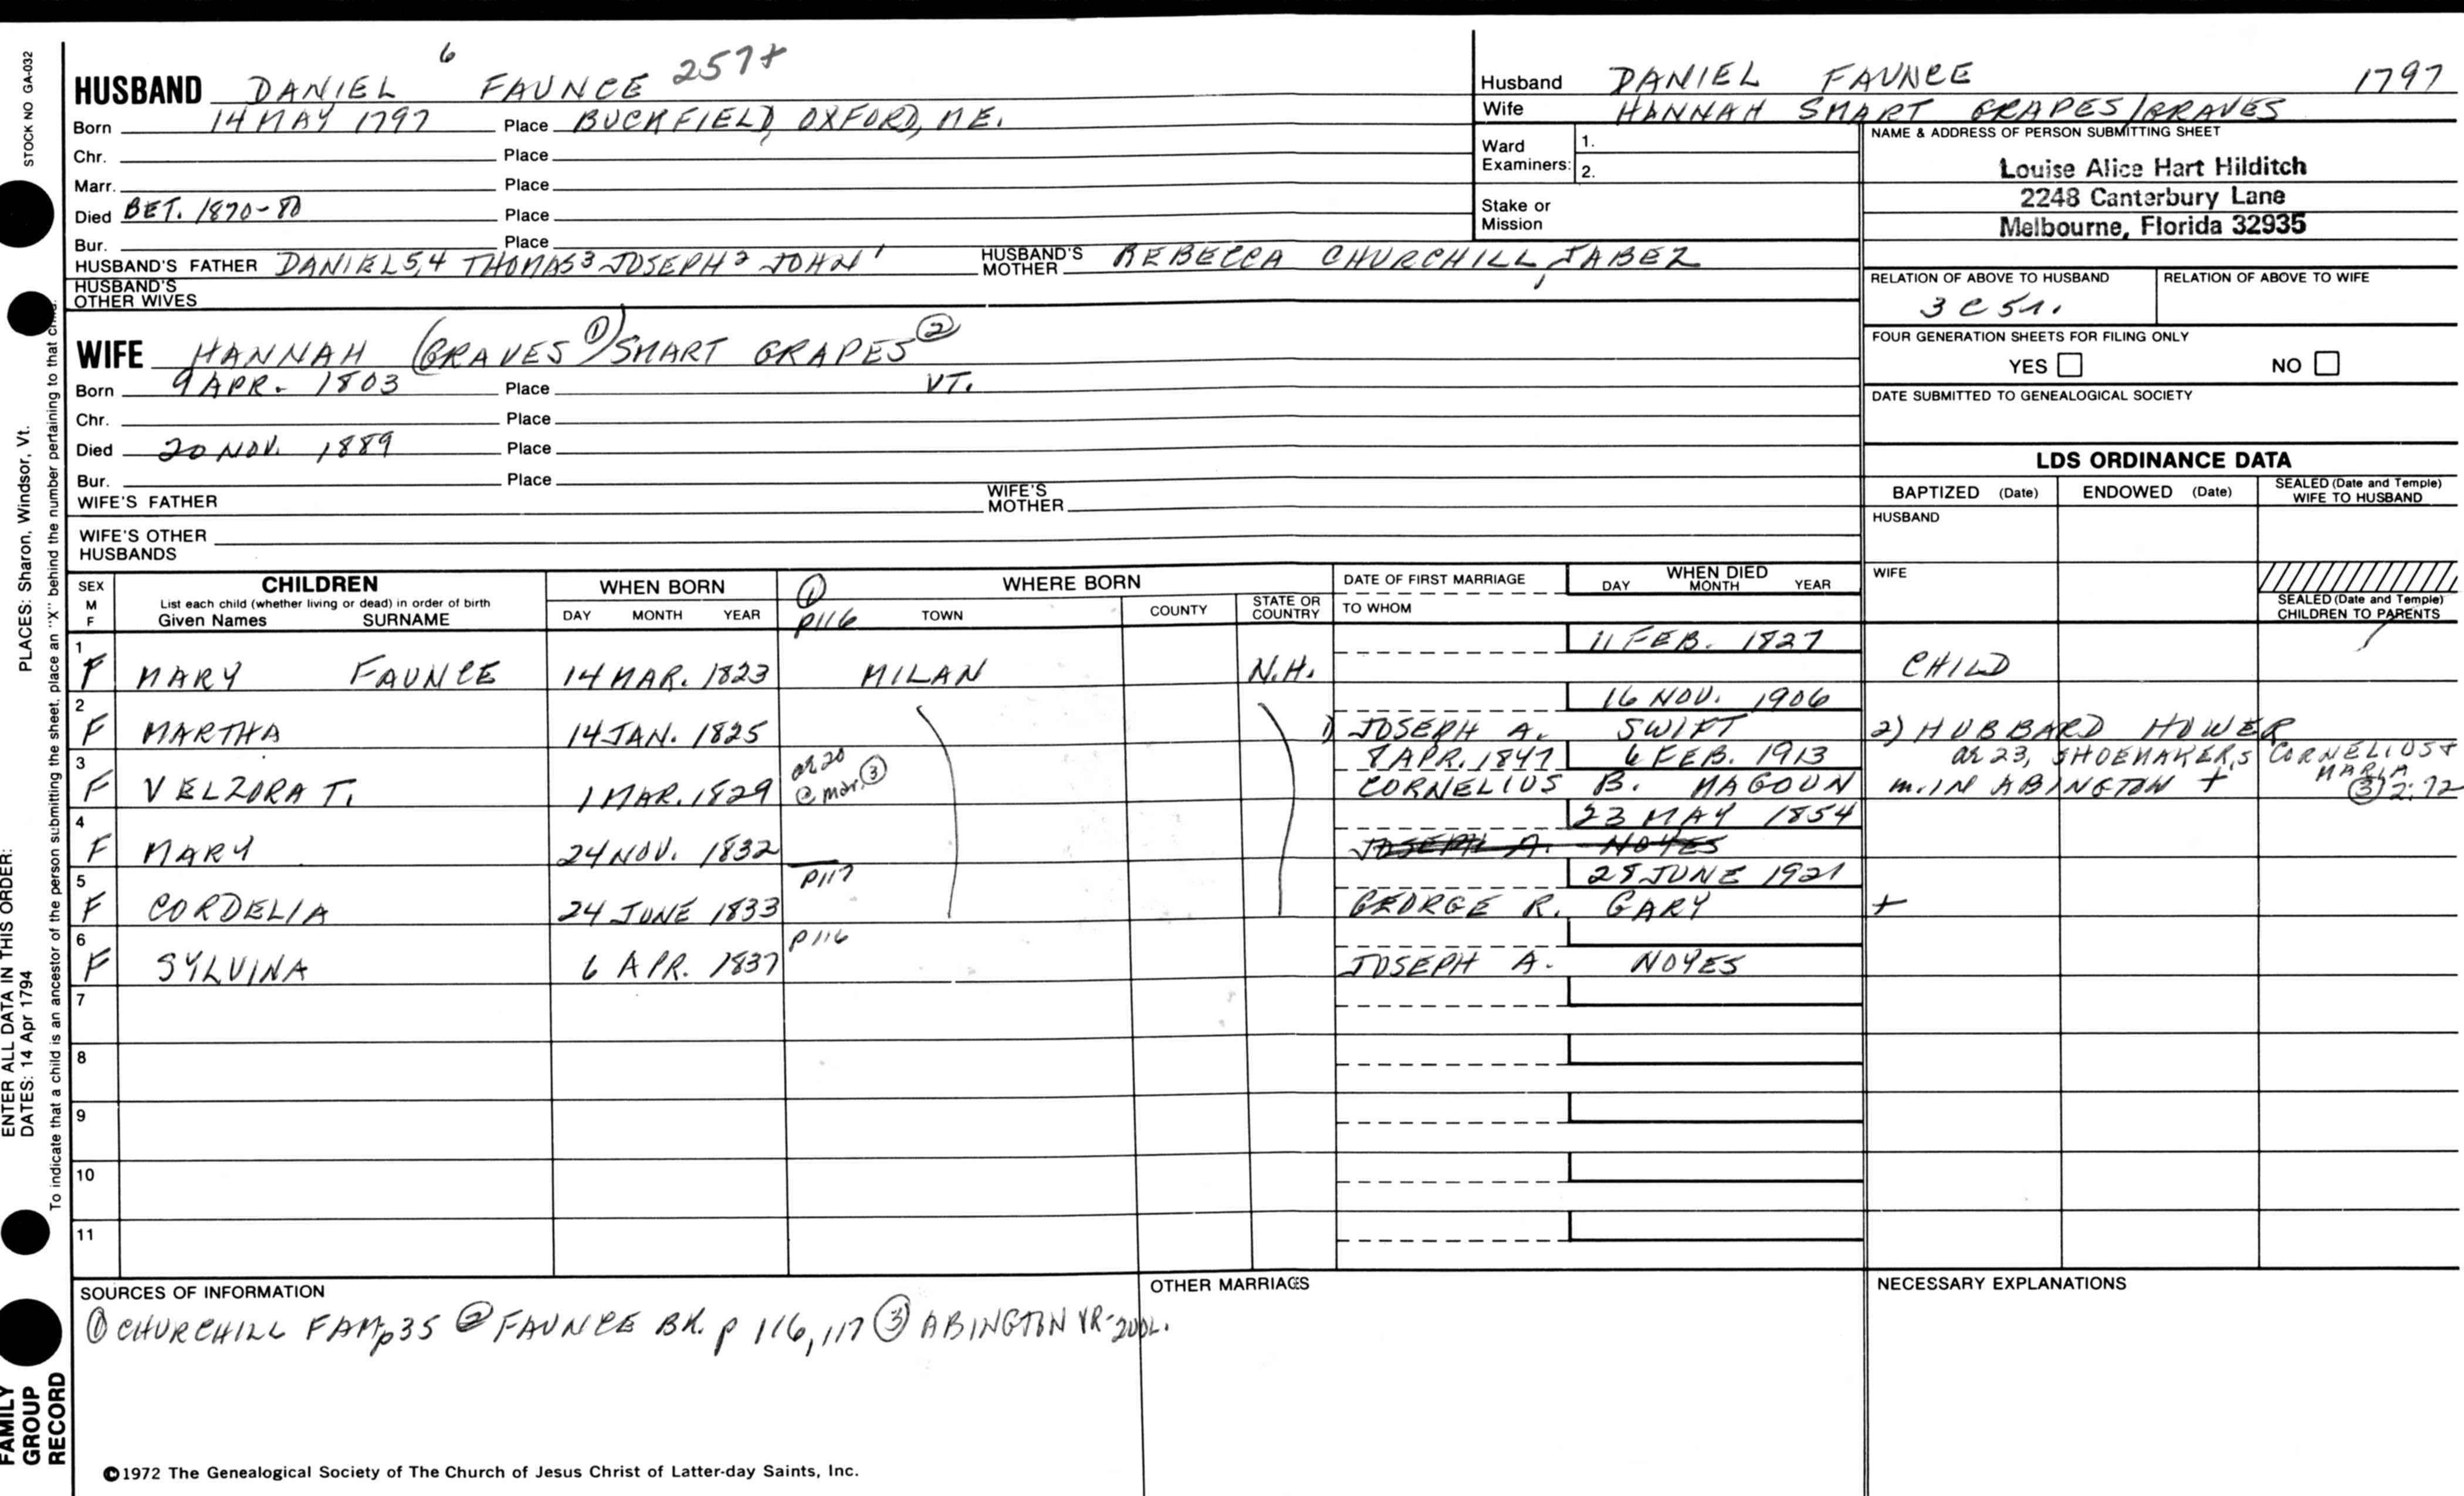 STOCK NO GA-032
HUSBAND DANIEL 6 FAUNCE 257+
Born 14 MAY 1797 Place BUCKFIELD, OXFORD, ME.
Chr. Place
Marr. Place
Died BET. 1870-80 Place
Bur. Place
HUSBAND'S FATHER DANIEL 5,4 THOMAS 3 JOSEPH 2 JOHN 1 HUSBAND'S MOTHER REBECCA CHURCHILL, JABEZ
HUSBAND'S OTHER WIVES
Husband DANIEL FAUNCE 1797
Wife HANNAH SMART GRAPES/GRAVES
Ward Examiners: 1.
2.
Stake or Mission
NAME & ADDRESS OF PERSON SUBMITTING SHEET
Louise Alice Hart Hilditch
2248 Canterbury Lane
Melbourne, Florida 32935
RELATION OF ABOVE TO HUSBAND RELATION OF ABOVE TO WIFE
3 C 5r.
FOUR GENERATION SHEETS FOR FILING ONLY
YES NO
DATE SUBMITTED TO GENEALOGICAL SOCIETY
WIFE HANNAH (GRAVES ①) SMART GRAPES ②
Born 9 APR. 1803 Place VT.
Chr. Place
Died 20 NOV. 1889 Place
Bur. Place
WIFE'S FATHER WIFE'S MOTHER
WIFE'S OTHER HUSBANDS
LDS ORDINANCE DATA
BAPTIZED (Date) ENDOWED (Date) SEALED (Date and Temple) WIFE TO HUSBAND
HUSBAND
WIFE
SEALED (Date and Temple) CHILDREN TO PARENTS
SEX M F CHILDREN List each child (whether living or dead) in order of birth Given Names SURNAME
WHEN BORN DAY MONTH YEAR
① p116 WHERE BORN TOWN COUNTY STATE OR COUNTRY
DATE OF FIRST MARRIAGE TO WHOM
WHEN DIED DAY MONTH YEAR
11 FEB. 1827
1 F MARY FAUNCE 14 MAR. 1823 MILAN N.H. CHILD
16 NOV. 1906
2 F MARTHA 14 JAN. 1825 1) JOSEPH A. SWIFT 2) HUBBARD HOWER
8 APR. 1847 6 FEB. 1913 ae 23, SHOEMAKER, S CORNELIUS + MARIA
3 F VELZORA T. 1 MAR. 1829 ae 20 @ mar. ③ CORNELIUS B. MAGOUN m. IN ABINGTON + ③ 2:72
23 MAY 1854
4 F MARY 24 NOV. 1832 JOSEPH A. NOYES
28 JUNE 1921
5 F CORDELIA 24 JUNE 1833 p117 GEORGE R. GARY +
6 F SYLVINA 6 APR. 1837 p116 JOSEPH A. NOYES
7
8
9
10
11
SOURCES OF INFORMATION
① CHURCHILL FAM p35 ② FAUNCE BK. p 116, 117 ③ ABINGTON VR-2VOL.
OTHER MARRIAGES
NECESSARY EXPLANATIONS
©1972 The Genealogical Society of The Church of Jesus Christ of Latter-day Saints, Inc.
ENTER ALL DATA IN THIS ORDER:
DATES: 14 Apr 1794
PLACES: Sharon, Windsor, Vt.
To indicate that a child is an ancestor of the person submitting the sheet, place an "X" behind the number pertaining to that child.
FAMILY
GROUP
RECORD